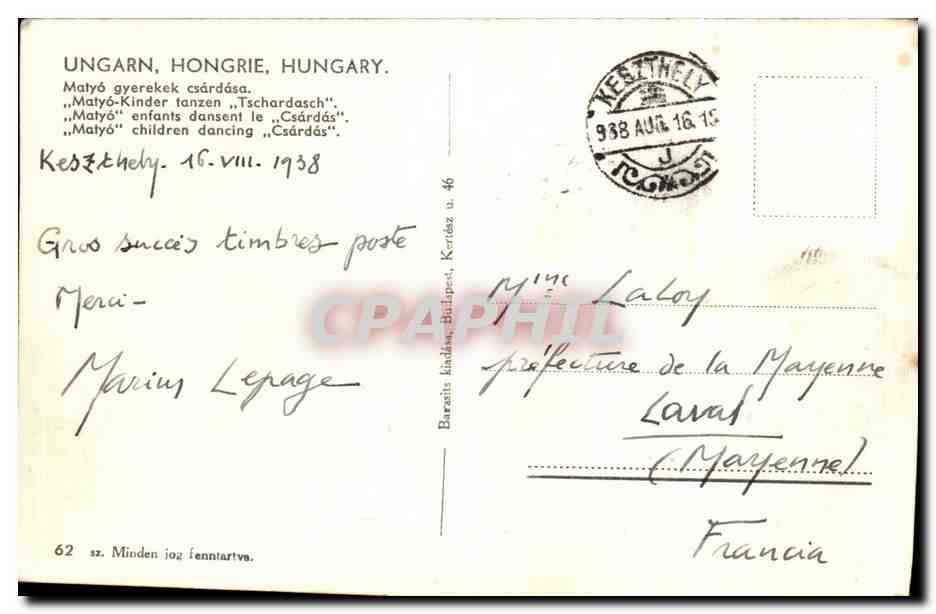 UNGARN, HONGRIE, HUNGARY.
Matyó gyerekek csárdása.
„Matyó-Kinder tanzen „Tschardasch".
„Matyó" enfants dansent le „Csárdás".
„Matyó" children dancing „Csárdás".
Keszthely. 16. VIII. 1938
Gros succès timbres poste
Merci –
Marius Lepage
62 sz. Minden jog fenntartva.
Barasits kiadása, Budapest, Kertész u. 46
KESZTHELY
938 AUG. 16. 15
J
Mme Laloy
préfecture de la Mayenne
Laval
(Mayenne)
Francia
CPAPHIL